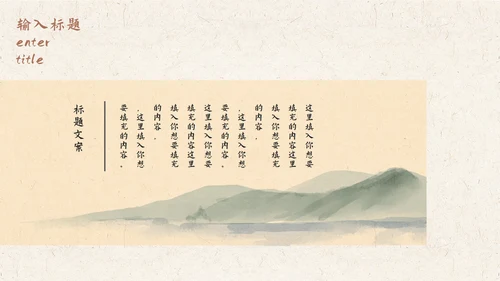 输入标题
enter
title
这里填入你想要
填充的内容这里
填入你想要填充
的内容.
.这里填入你想
要填充的内容.
这里填入你想要
填充的内容这里
填入你想要填充
的内容.
.这里填入你想
要填充的内容。
标题文案